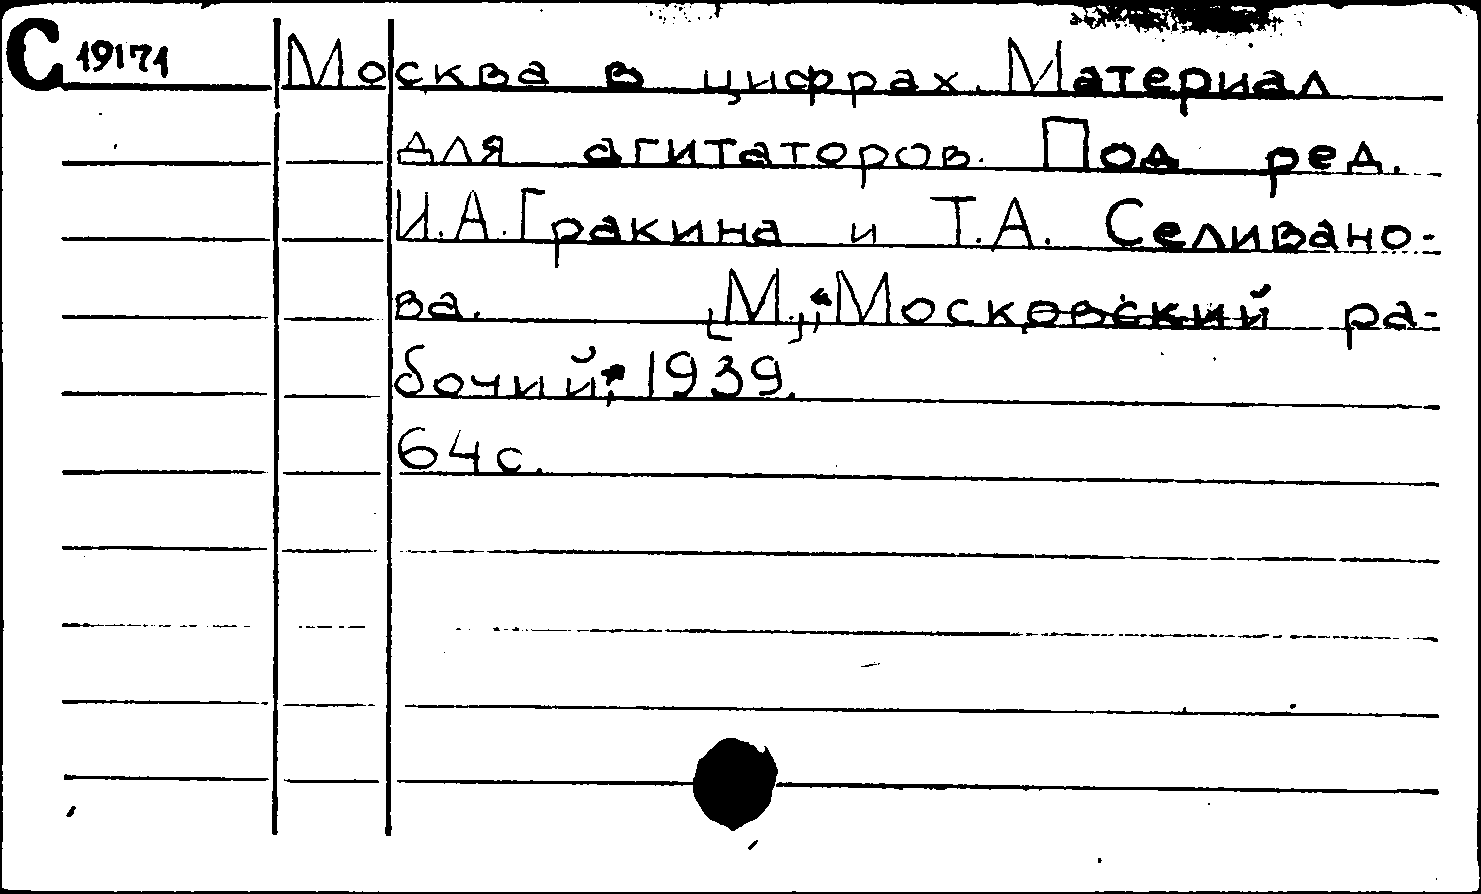 С 19171 Москва в цифрах. Материал
для агитаторов. Под ред.
И.А.Гракина и Т.А. Селивано-
ва. [М.], Московский ра-
бочий, 1939.
64 с.